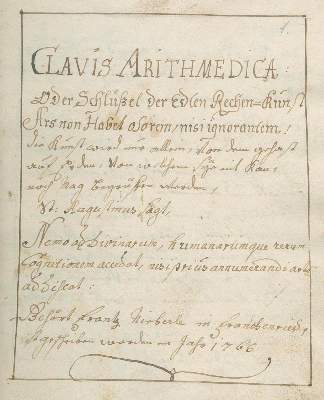 1.
CLAVIS ARITHMEDICA:
Oder Schlüßel der Edlen Rechen-Kunst
Ars non Habet osorem, nisi ignorantem.
die Kunst wird nur allein, von dem gehast
auf Erden, Von welchem Sye nit Kan,
noch Mag begriffen werden,
St: Augustinus Sagt,
Nemo ad Divinarum, humanarumque rerum
Cognitionem accedat, nisi prius annumerandi artem
addiscat:
Gehört Frantz Nieberle in Franckenried,
geschriben worden im Jahr 1766